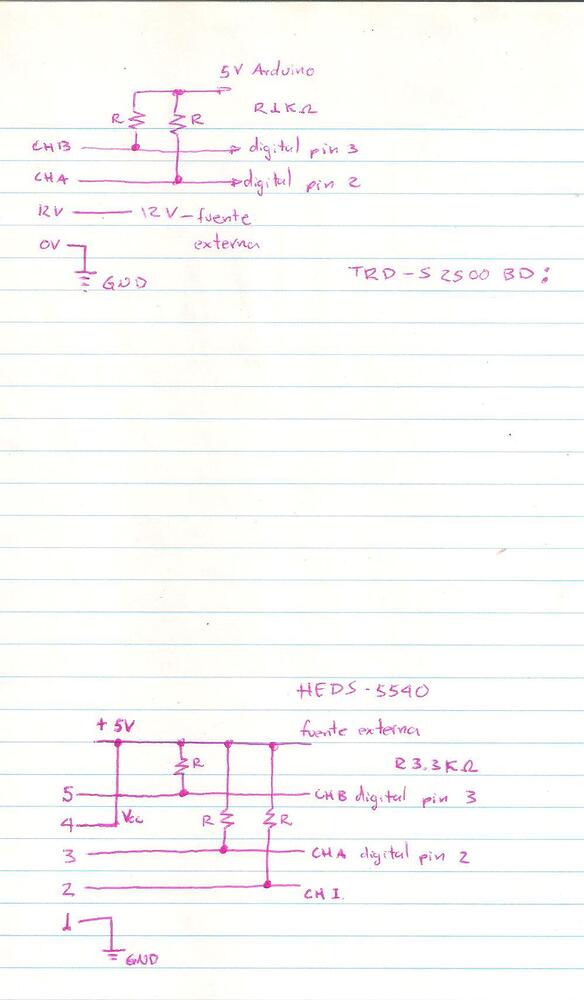 5V Arduino
R 1KΩ
R R
CHB digital pin 3
CHA digital pin 2
12V 12V-fuente
externa
0V
GND
TRD-S 2500 BD:
HEDS-5540
+ 5V fuente externa
R 3.3KΩ
R
5 CHB digital pin 3
4 Vcc R R
3 CHA digital pin 2
2 CH I.
1
GND